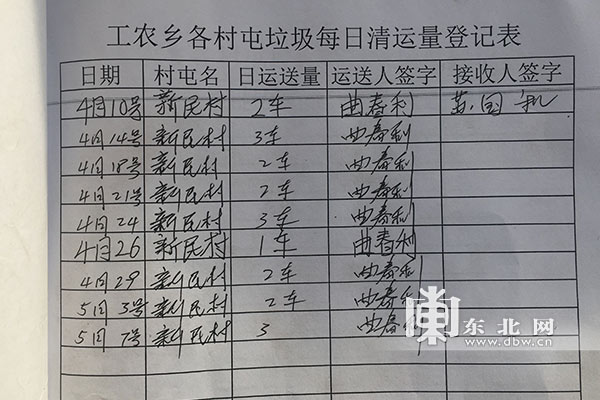 工农乡各村屯垃圾每日清运量登记表
日期 村屯名 日运送量 运送人签字 接收人签字
4月10号 新民村 2车 曲春利 国
4月14号 新民村 3车 曲春利
4月18号 新民村 2车 曲春利
4月21号 新民村 2车 曲春利
4月24 新民村 3车 曲春利
4月26 新民村 1车 曲春利
4月29 新民村 2车 曲春利
5月3号 新民村 2车 曲春利
5月7号 新民村 3 曲春利
東 东北网
www.dbw.cn